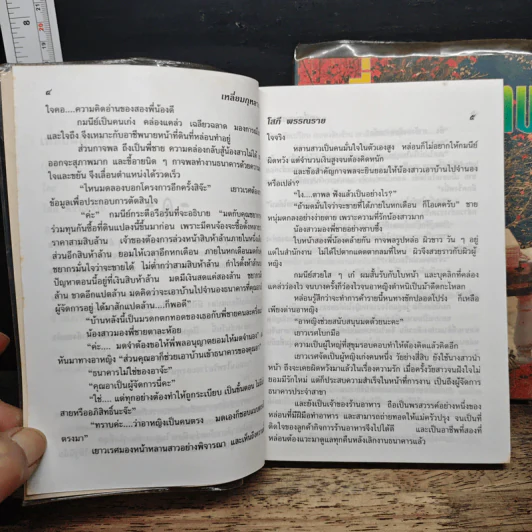 ๔ เหลี่ยมกุหลาบ
ใจคอ....ความคิดอ่านของสองพี่น้องดี
กมนีย์เป็นคนเก่ง คล่องแคล่ว เฉลียวฉลาด มองการณ์
และใจถึง จึงเหมาะกับอาชีพนายหน้าที่ดินที่หล่อนทำอยู่
ส่วนกาจพล ถึงเป็นพี่ชาย ความคล่องกลับสู้น้องสาวไม่ได้
ออกจะสุภาพมาก และขี้อายนิด ๆ กาจพลทำงานธนาคารด้วยความ
ใจและขยัน จึงเลื่อนตำแหน่งได้รวดเร็ว
"ไหนมดลองบอกโครงการอีกครั้งสิจ๊ะ" เยาวเรศ
ข้อมูลเพื่อประกอบการตัดสินใจ
"ค่ะ" กมนีย์กระตือรือร้นที่จะอธิบาย "มดกับคุณพยากร
ร่วมทุนกันซื้อที่ดินแปลงนี้ขึ้นมาก่อน เพราะมีคนจ้องจะซื้อ
ราคาสามสิบล้าน เจ้าของต้องการล่วงหน้าสิบห้าล้านภายในหนึ่ง
ส่วนอีกสิบห้าล้าน ยอมให้เวลาอีกหกเดือน ภายในหกเดือนมด
ขยากรมั่นใจว่าจะขายได้ ไม่ต่ำกว่าสามสิบห้าล้าน กำไรตั้งห้าล้าน
ปัญหาตอนนี้อยู่ที่เงินสิบห้าล้าน มดมีเงินสดแค่สองล้าน
ล้าน ขาดอีกแปดล้าน มดคิดว่าจะเอาบ้านไปจำนองธนาคารที่คุณ
ผู้จัดการอยู่ ได้มาสักแปดล้าน....ก็พอดี"
"บ้านหลังนี้เป็นมรดกตกทอดของเธอกับพี่ชายคนละครึ่ง
น้องสาวมองพี่ชายตาละห้อย
"ค่ะ.... มดจำต้องขอให้พี่พลอนุญาตยอมให้มดจำนอง"
หันมาทางอาหญิง "ส่วนคุณอาก็ช่วยเอาบ้านเข้าธนาคารของคุณ
"ธนาคารไม่ใช่ของอาจ้ะ"
"คุณอาเป็นผู้จัดการนี่คะ"
"ใช่.... แต่ทุกอย่างต้องทำให้ถูกระเบียบ เป็นขั้นตอน ไม่
สายหรืออภิสิทธิ์นะจ๊ะ"
"ทราบค่ะ....ว่าอาหญิงเป็นคนตรง มดเองก็ชอบ
ตรงมา"
เยาวเรศมองหน้าหลานสาวอย่างพิจารณา และเห็น
โสภี พรรณราย ๕
ใจจริง
หลานสาวเป็นคนมั่นใจในตัวเองสูง หล่อนก็ไม่อยากให้กมนีย์
ผิดหวัง แต่จำนวนเงินสูงจนต้องคิดหนัก
และข้อสำคัญกาจพลจะยินยอมให้น้องสาวเอาบ้านไปจำนอง
หรือเปล่า?
"ไง....ตาพล ฟังแล้วเป็นอย่างไร?"
"ถ้ามดมั่นใจว่าจะขายที่ได้ภายในหกเดือน ก็โอเคครับ" ชาย
หนุ่มตกลงอย่างง่ายดาย เพราะความที่รักน้องสาวมาก
น้องสาวมองพี่ชายอย่างซาบซึ้ง
ใบหน้าสองพี่น้องคล้ายกัน กาจพลรูปหล่อ ผิวขาว วัน ๆ อยู่
แต่ในสำนักงาน ไม่ได้ไปตากแดดตากลมที่ไหน ผิวจึงสวยราวกับผิวผู้
หญิง
กมนีย์สวยใส ๆ เก๋ ผมสั้นรับกับใบหน้า และบุคลิกที่คล่อง
แคล่วว่องไว จนบางครั้งก็ว่องไวจนอาหญิงตำหนิเป็นม้าดีดกะโหลก
หล่อนรู้สึกว่าจะทำการค้ารายนี้หนทางชักปลอดโปร่ง ก็เหลือ
เพียงด่านอาหญิง
"อาหญิงช่วยสนับสนุนมดด้วยนะคะ"
เยาวเรศโบกมือ
ความเป็นผู้ใหญ่ที่สุขุมรอบคอบทำให้ต้องคิดแล้วคิดอีก
เยาวเรศจัดเป็นผู้หญิงเก่งคนหนึ่ง วัยย่างสี่สิบ ยังใช้นางสาวนำ
หน้า ถึงจะเคยผิดหวังมาแล้วในเรื่องความรัก เมื่อครั้งวัยสาวจนฝังใจไม่
ยอมมีรักใหม่ แต่ก็ประสบความสำเร็จในหน้าที่การงาน เป็นถึงผู้จัดการ
ธนาคารประจำสาขา
และยังเป็นเจ้าของร้านอาหาร ถือเป็นพรสวรรค์อย่างหนึ่งของ
หล่อนที่มีฝีมือทำอาหาร และสามารถถ่ายทอดให้แม่ครัวปรุง จนเป็นที่
ติดใจของลูกค้ากิจการร้านอาหารจึงไปได้ดี และเป็นอาชีพที่สองที่
หล่อนต้องแวะมาดูแลทุกคืนหลังเลิกงานธนาคารแล้ว